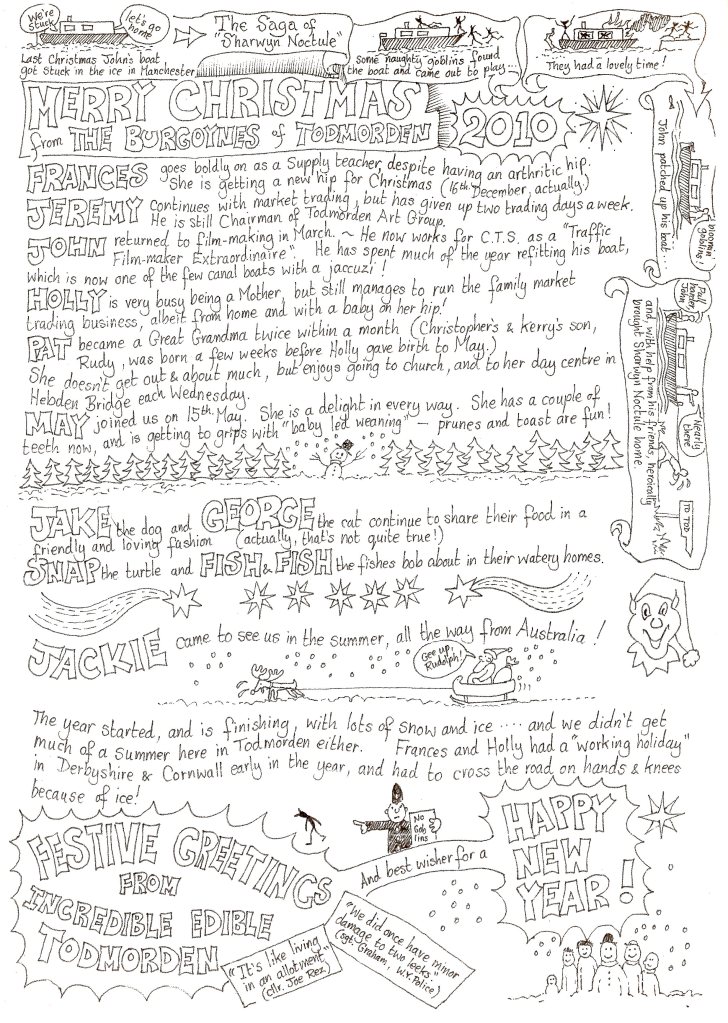 We're stuck
let's go home
The Saga of
"Sharwyn Noctule"
Last Christmas John's boat
got stuck in the ice in Manchester
Some naughty goblins found
the boat and came out to play...
They had a lovely time!
John patched up his boat...
bloomin goblins
Pull harder, John
and, with help from his friends, heroically
brought Sharwyn Noctule home
Nearly there
TO TOD
MERRY CHRISTMAS
from THE BURGOYNES of TODMORDEN
2010
FRANCES goes boldly on as a Supply teacher despite having an arthritic hip.
She is getting a new hip for Christmas (16th December, actually)
JEREMY continues with market trading, but has given up two trading days a week.
He is still Chairman of Todmorden Art Group.
JOHN returned to film-making in March. ~ He now works for C.T.S. as a "Traffic
Film-maker Extraordinaire". He has spent much of the year refitting his boat,
which is now one of the few canal boats with a jaccuzi!
HOLLY is very busy being a Mother, but still manages to run the family market
trading business, albeit from home and with a baby on her hip!
PAT became a Great Grandma twice within a month (Christopher's & Kerry's son,
Rudy, was born a few weeks before Holly gave birth to May.)
She doesn't get out & about much, but enjoys going to church, and to her day centre in
Hebden Bridge each Wednesday.
MAY joined us on 15th May. She is a delight in every way. She has a couple of
teeth now, and is getting to grips with "baby led weaning" — prunes and toast are fun!
JAKE the dog and GEORGE the cat continue to share their food in a
friendly and loving fashion (actually, that's not quite true!)
SNAP the turtle and FISH & FISH the fishes bob about in their watery homes.
JACKIE came to see us in the summer, all the way from Australia!
Gee up, Rudolph!
The year started, and is finishing, with lots of snow and ice .... and we didn't get
much of a summer here in Todmorden either. Frances and Holly had a "working holiday"
in Derbyshire & Cornwall early in the year, and had to cross the road on hands & knees
because of ice!
No Gob lins
FESTIVE GREETINGS
FROM
INCREDIBLE EDIBLE
TODMORDEN
And best wishes for a
HAPPY
NEW
YEAR!
"It's like living
in an allotment"
(cllr. Joe Rez)
"We did once have minor
damage to two leeks"
(sgt. Graham, W.Y. Police)